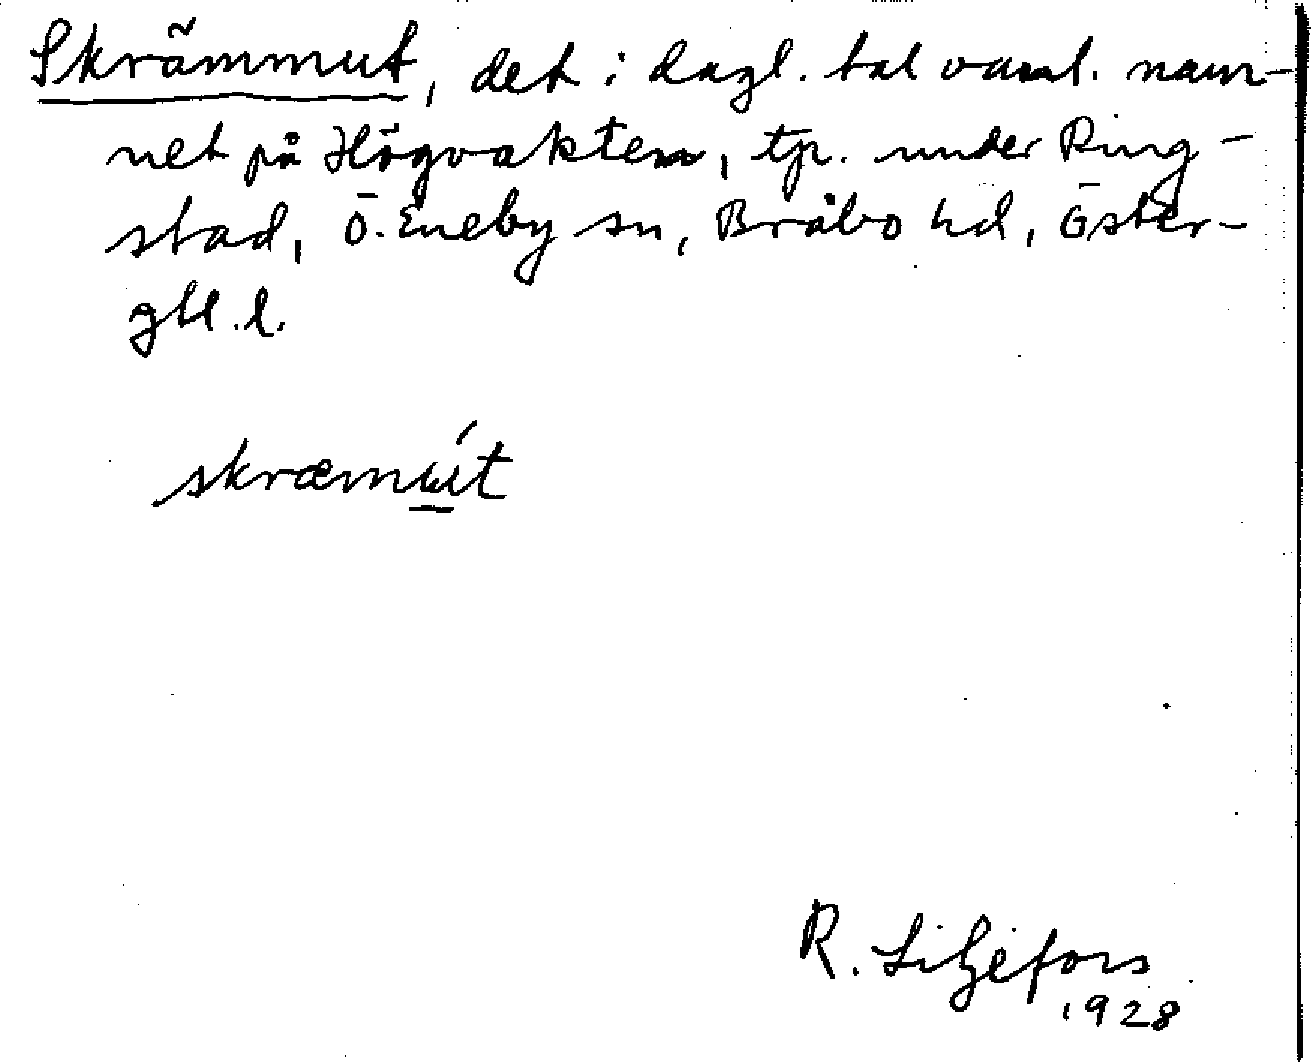 Skrämmut, det i dagl. tal vanl. nam-
net på Högvakten, tp. under Ring-
stad, Ö. Eneby sn, Bråbo hd, Öster-
gtl. l.
skræmút
R. Liljefors
1928